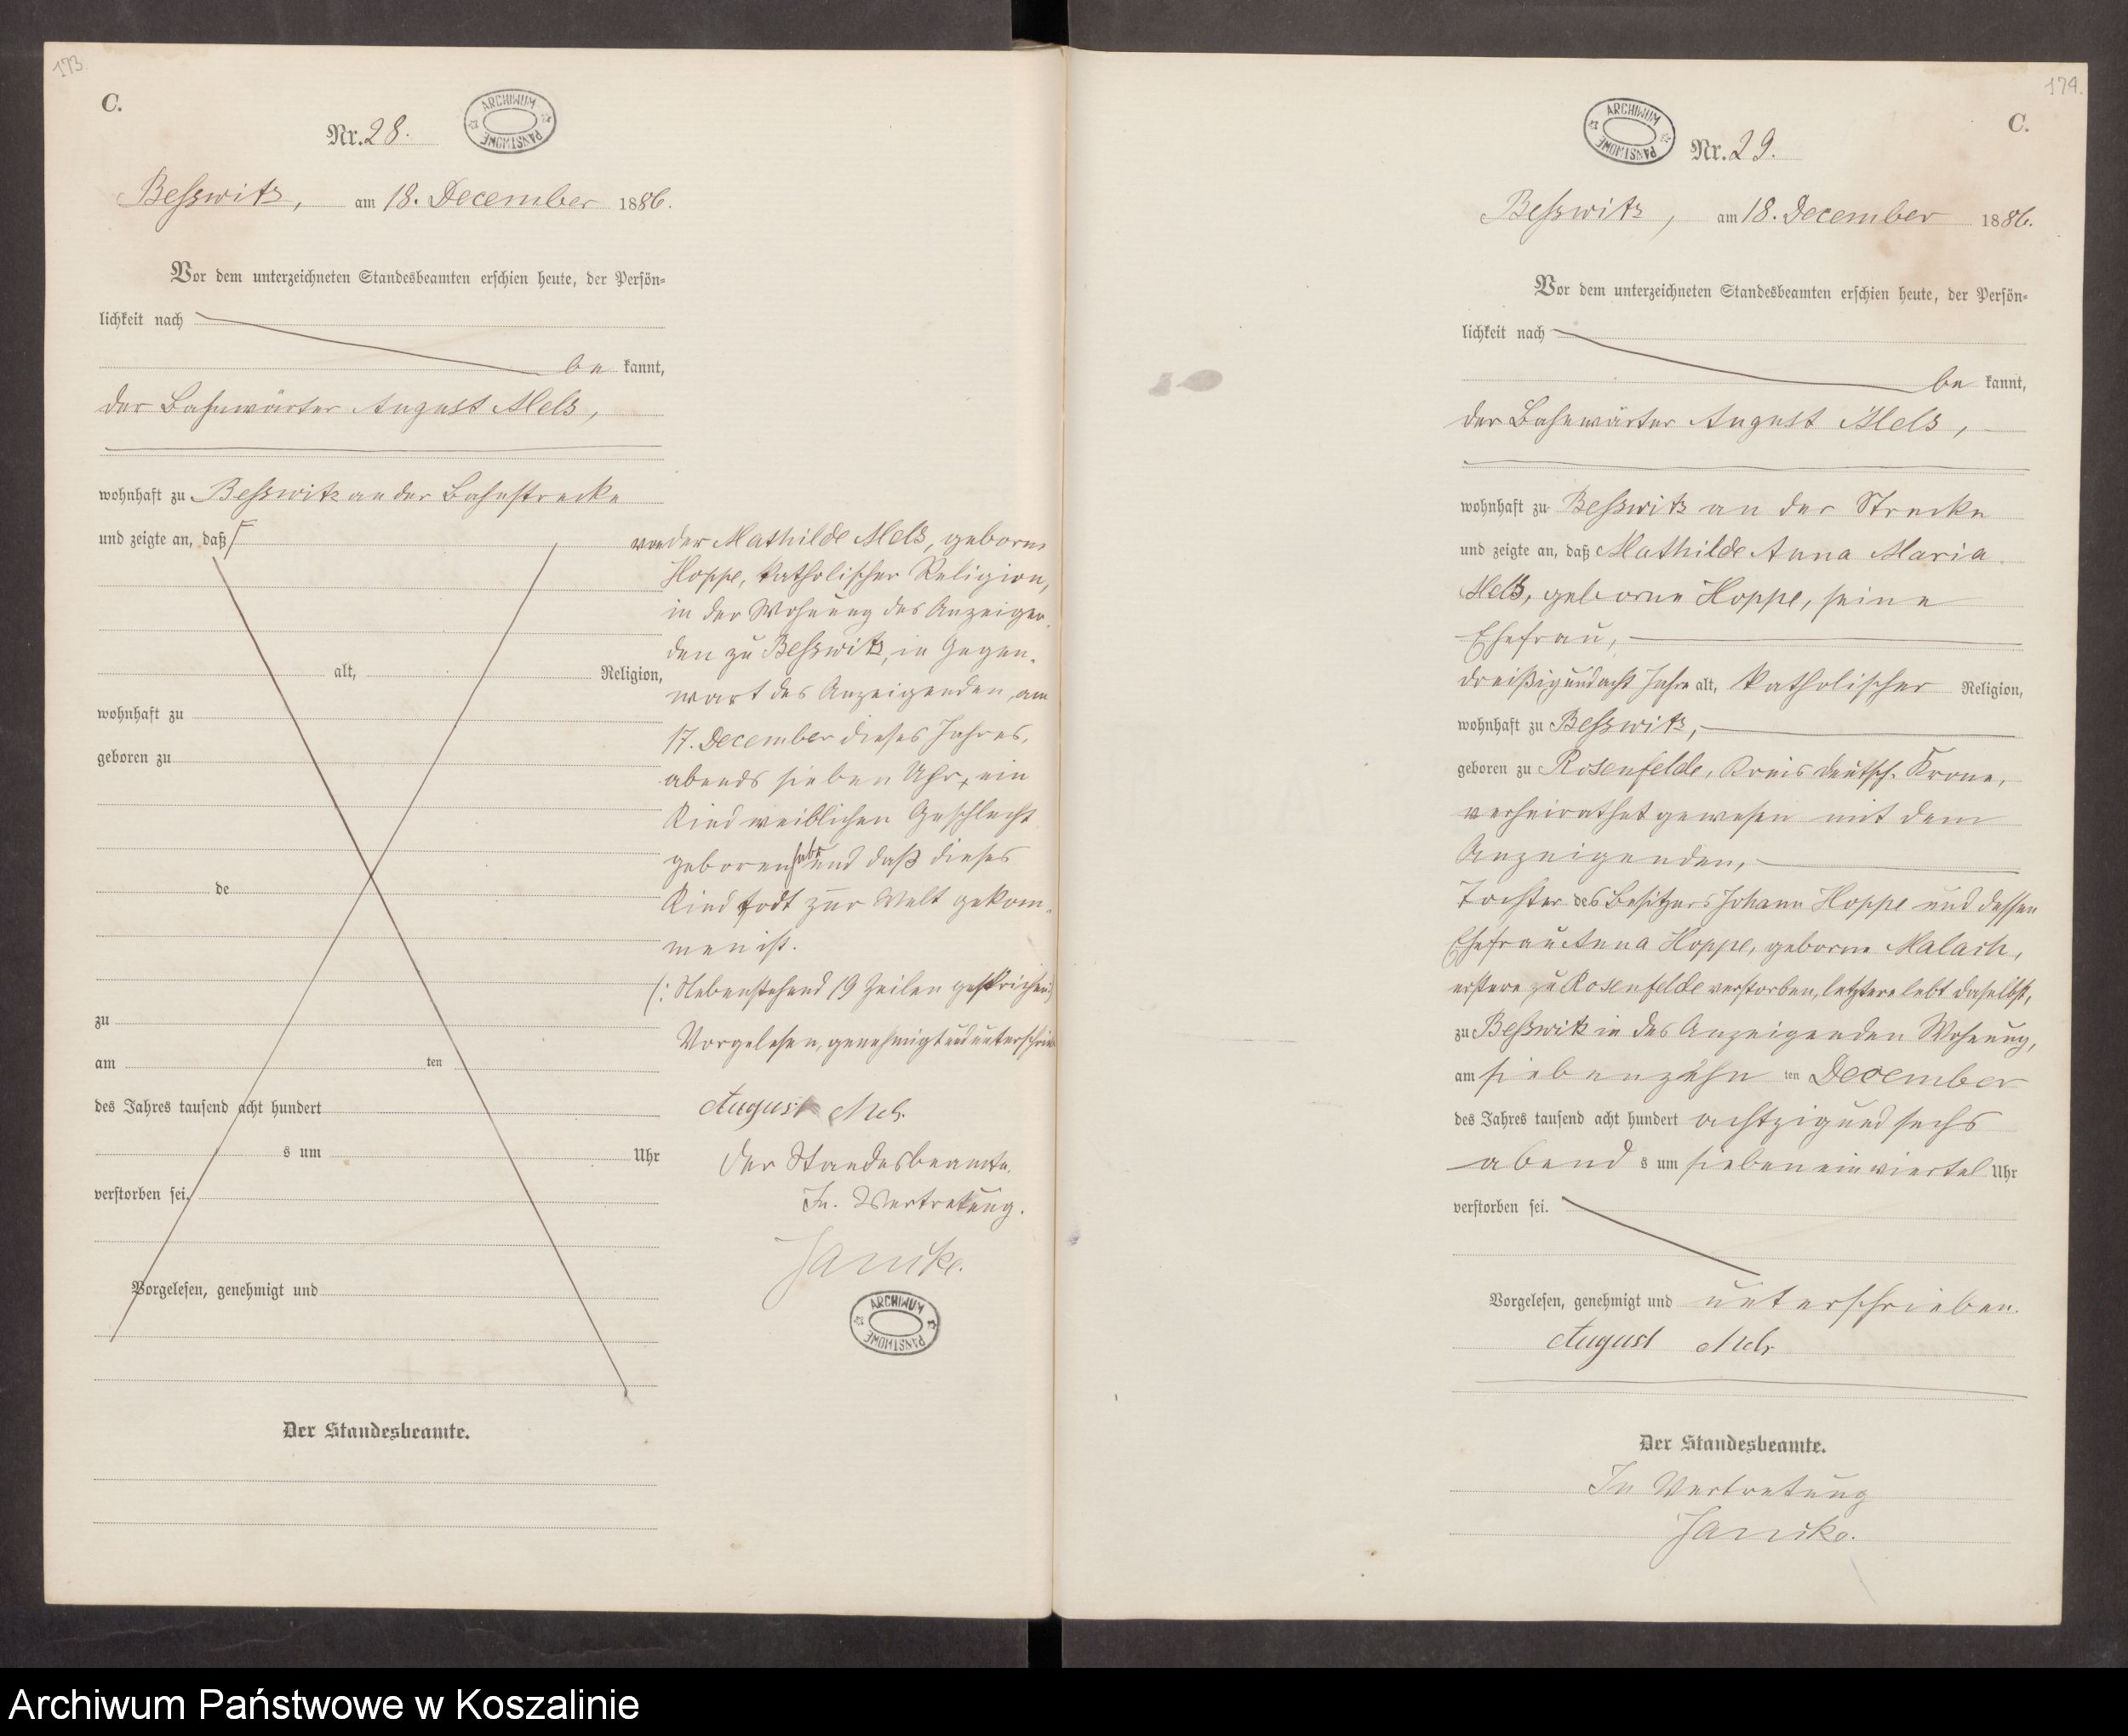 173.
C.
Nr. 28.
ARCHIWUM PAŃSTWOWE
Besswitz, am 18. December 1886.
Vor dem unterzeichneten Standesbeamten erschien heute, der Persön-
lichkeit nach
be kannt,
der Bahnwärter August Mels,
wohnhaft zu Besswitz an der Bahnstrecke
und zeigte an, daß
von der Mathilde Mels, geborne
Hoppe, katholischer Religion,
in der Wohnung des Anzeigen-
den zu Besswitz, in Gegen-
wart des Anzeigenden, am
17. December dieses Jahres,
abends sieben Uhr, ein
Kind weiblichen Geschlecht
geboren habe und daß dieses
Kind todt zur Welt gekom-
men ist.
(: Nebenstehend 19 Zeilen gestrichen:)
Vorgelesen, genehmigt und unterschrieben
August Mels
Der Standesbeamte.
In Vertretung.
Janike.
ARCHIWUM PAŃSTWOWE
alt, Religion,
wohnhaft zu
geboren zu
de
zu
am ten
des Jahres tausend acht hundert
s um Uhr
verstorben sei.
Vorgelesen, genehmigt und
Der Standesbeamte.
174.
C.
ARCHIWUM PAŃSTWOWE
Nr. 29.
Besswitz, am 18. December 1886.
Vor dem unterzeichneten Standesbeamten erschien heute, der Persön-
lichkeit nach
be kannt,
der Bahnwärter August Mels,
wohnhaft zu Besswitz an der Strecke
und zeigte an, daß Mathilde Anna Maria
Mels, geborne Hoppe, seine
Ehefrau,
dreißig und acht Jahre alt, katholischer Religion,
wohnhaft zu Besswitz,
geboren zu Rosenfelde, Kreis Deutsch-Krone,
verheirathet gewesen mit dem
Anzeigenden,
Tochter des Besitzers Johann Hoppe und dessen
Ehefrau Anna Hoppe, geborne Malach,
erstere zu Rosenfelde verstorben, letztere lebt daselbst,
zu Besswitz in des Anzeigenden Wohnung,
am siebenzehn ten December
des Jahres tausend acht hundert achtzig und sechs
abend s um sieben ein viertel Uhr
verstorben sei.
Vorgelesen, genehmigt und unterschrieben.
August Mels
Der Standesbeamte.
In Vertretung
Janike.
Archiwum Państwowe w Koszalinie